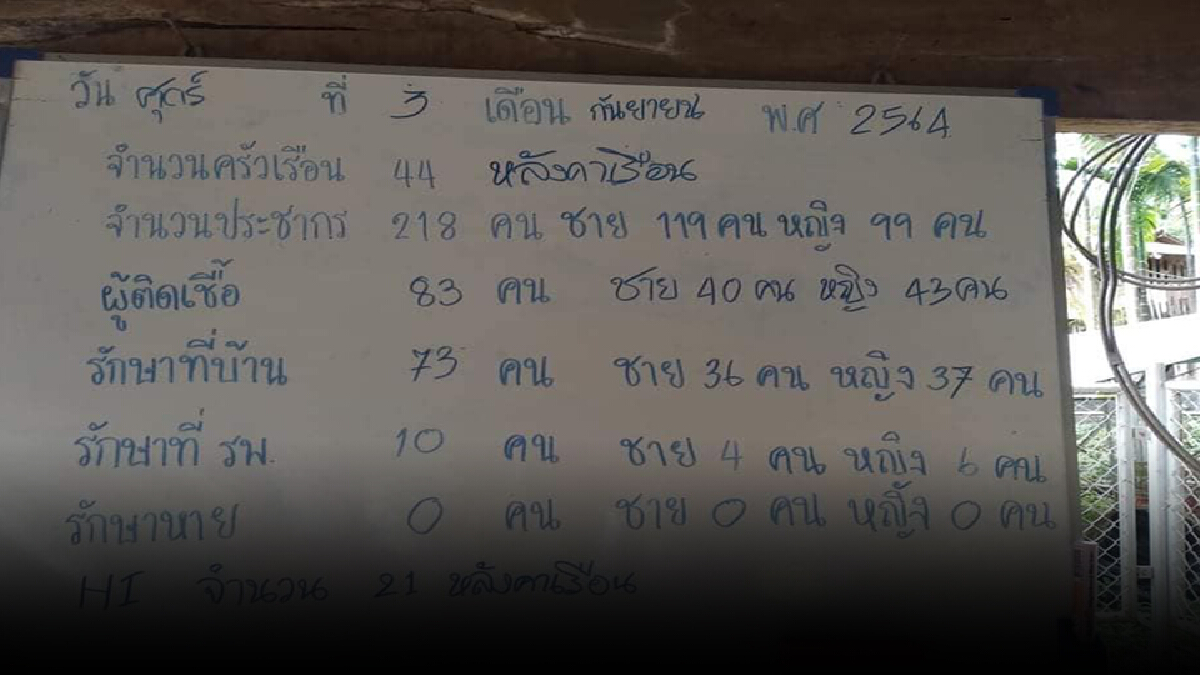 วัน ศุกร์ ที่ 3 เดือน กันยายน พ.ศ 2564
จำนวนครัวเรือน 44 หลังคาเรือน
จำนวนประชากร 218 คน ชาย 119 คน หญิง 99 คน
ผู้ติดเชื้อ 83 คน ชาย 40 คน หญิง 43 คน
รักษาที่บ้าน 73 คน ชาย 36 คน หญิง 37 คน
รักษาที่ รพ. 10 คน ชาย 4 คน หญิง 6 คน
รักษาหาย 0 คน ชาย 0 คน หญิ้ง 0 คน
HI จำนวน 21 หลังคาเรือน